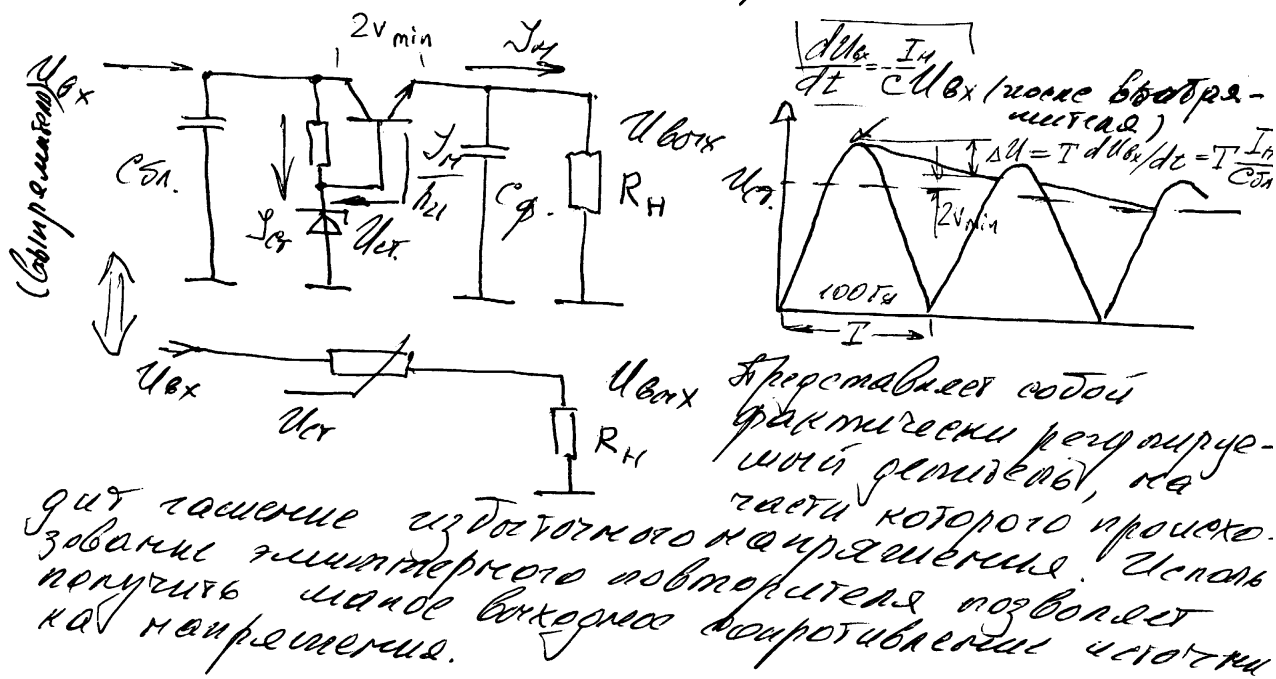 2v min
Iн
Uвх
(выпрямитель)
Cбл.
Iст
Uст.
Iн
h21
Cф.
Uвых
RH
dUвх/dt = -Iн/C
Uвх (после выпря-
мителя)
ΔU = T dUвх/dt = T Iн/Cбл
Uст.
2v min
100 Гц
T
Uвх
Uст
Uвых
RH
Представляет собой
фактически регулируе-
мый делитель, на
части которого происхо-
дит гашение избыточного напряжения. Исполь
зование эмиттерного повторителя позволяет
получить малое выходное сопротивление источни
ка напряжения.